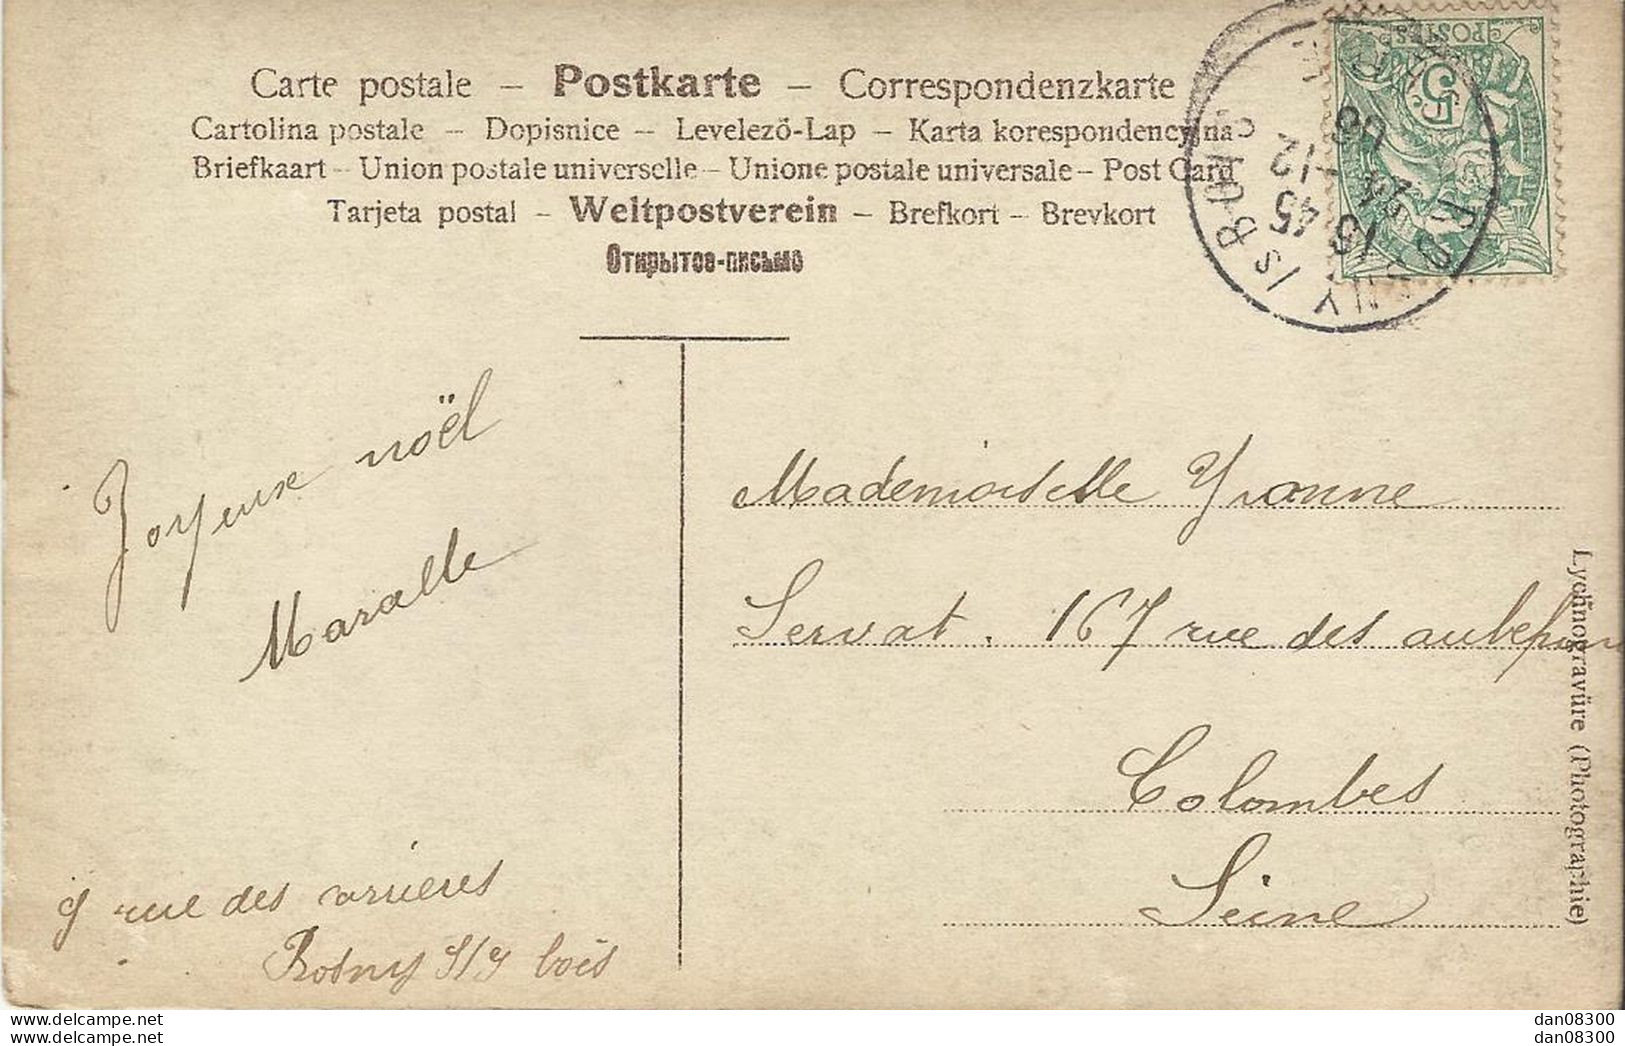 Carte postale – Postkarte – Correspondenzkarte
Cartolina postale – Dopisnice – Levelező-Lap – Karta korespondencyjna
Briefkaart – Union postale universelle – Unione postale universale – Post Card
Tarjeta postal – Weltpostverein – Brefkort – Brevkort
Открытое-письмо
POSTES
5
Y /S BOIS
15 45
12
Joyeuse noël
Maralle
9 rue des
Rosny S/S bois
Mademoiselle Yvonne
Servat. 167 rue des
Colombes
Seine
Lychnogravüre (Photographie)
dan08300.delcampe.net
dan08300.delcampe.net
dan08300
dan08300